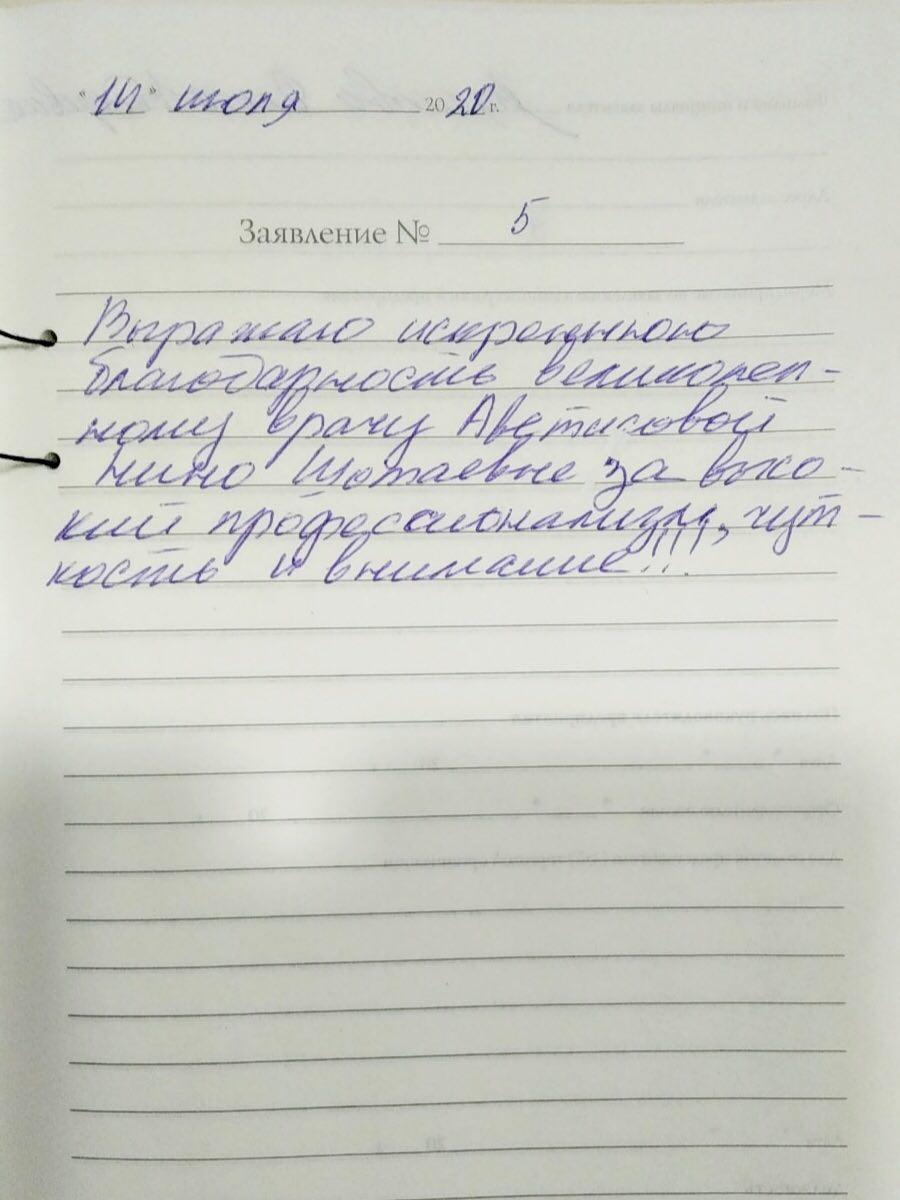 "14" июля 2020 г.
Заявление № 5
Выражаю искреннюю
благодарность великолеп-
ному врачу Аветисовой
Нино Шотаевне за высо-
кий профессионализм, чут-
кость и внимание!!!